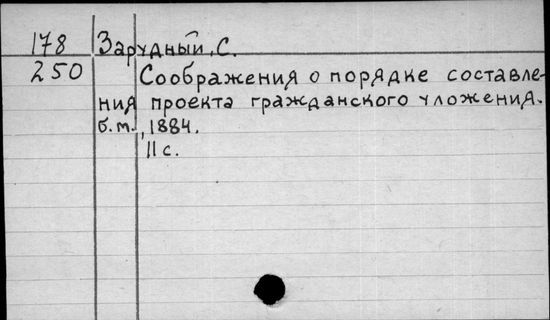 178 Зарудный, С.
250 Соображения о порядке составле-
ния проекта гражданского уложения.
б.м., 1884.
11 с.